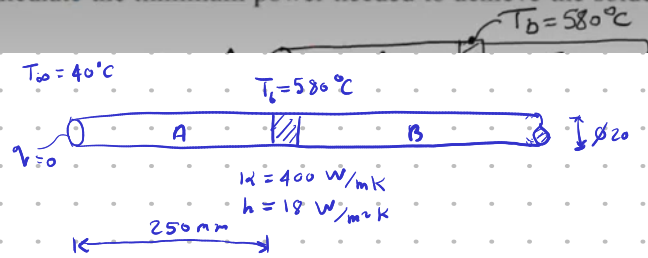 Tb = 580°C
T∞ = 40°C
Tb = 580°C
A
B
φ20
q = 0
K = 400 W/mK
h = 18 W/m²K
250 mm